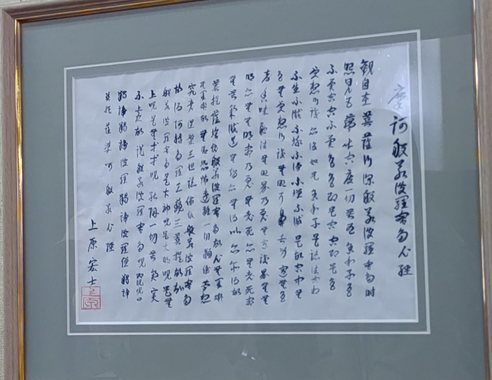 摩訶般若波羅蜜多心経
観自在菩薩行深般若波羅蜜多時
照見五蘊皆空度一切苦厄舎利子色
不異空空不異色色即是空空即是色
受想行識亦復如是舎利子是諸法空相
不生不滅不垢不浄不増不減是故空中無
色無受想行識無眼耳鼻舌身意無色
声香味触法無眼界乃至無意識界無
無明亦無無明尽乃至無老死亦無老死尽
無苦集滅道無智亦無得以無所得故
菩提薩埵依般若波羅蜜多故心無罣礙
無罣礙故無有恐怖遠離一切顛倒夢想
究竟涅槃三世諸仏依般若波羅蜜多
故得阿耨多羅三藐三菩提故知
般若波羅蜜多是大神呪是大明呪是無
上呪是無等等呪能除一切苦真実
不虚故説般若波羅蜜多呪即説呪曰
羯諦羯諦波羅羯諦波羅僧羯諦
菩提薩婆訶般若心経
上原宏士